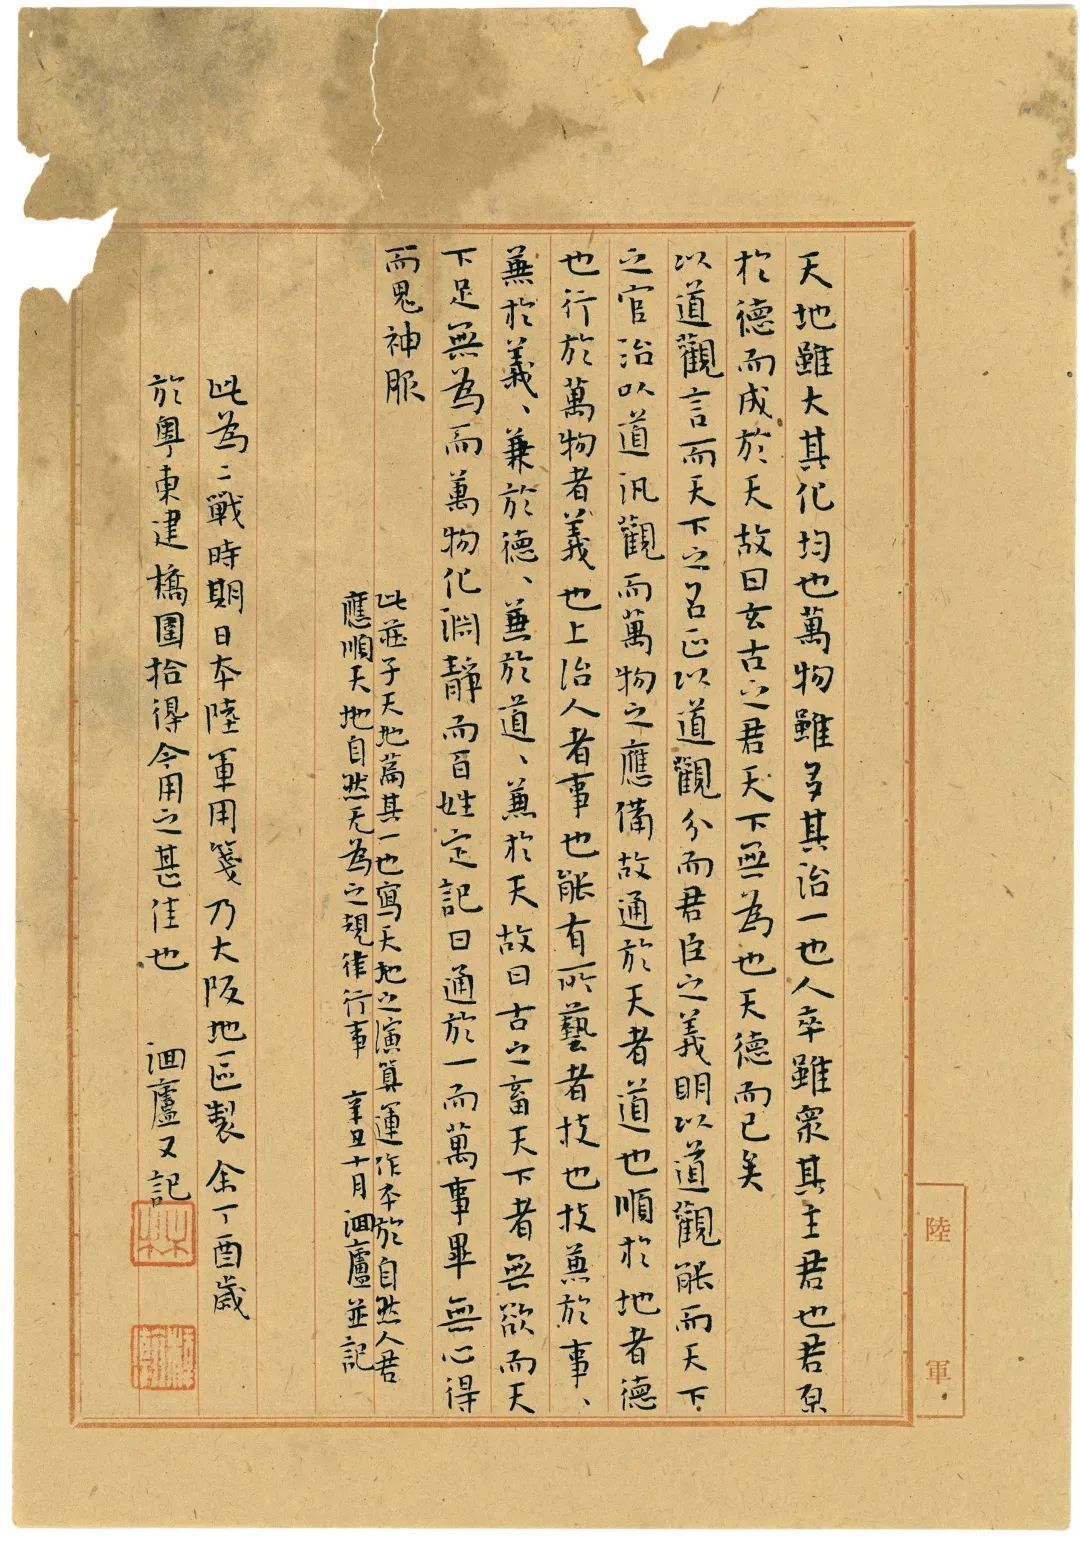 天地雖大其化均也萬物雖多其治一也人卒雖衆其主君也君原
於德而成於天故曰玄古之君天下無為也天德而已矣
以道觀言而天下之名正以道觀分而君臣之義明以道觀能而天下
之官治以道汎觀而萬物之應備故通於天者道也順於地者德
也行於萬物者義也上治人者事也能有所藝者技也技兼於事、
兼於義、兼於德、兼於道、兼於天故曰古之畜天下者無欲而天
下足無為而萬物化淵靜而百姓定記曰通於一而萬事畢無心得
而鬼神服
此莊子天地篇其一也寫天地之演算運作本於自然人君
應順天地自然无為之規律行事 辛丑十月洄廬並記
此為二戰時期日本陸軍用箋乃大阪地區製余丁酉歲
於粵東建橋圍拾得今用之甚佳也 洄廬又記
陸軍
林